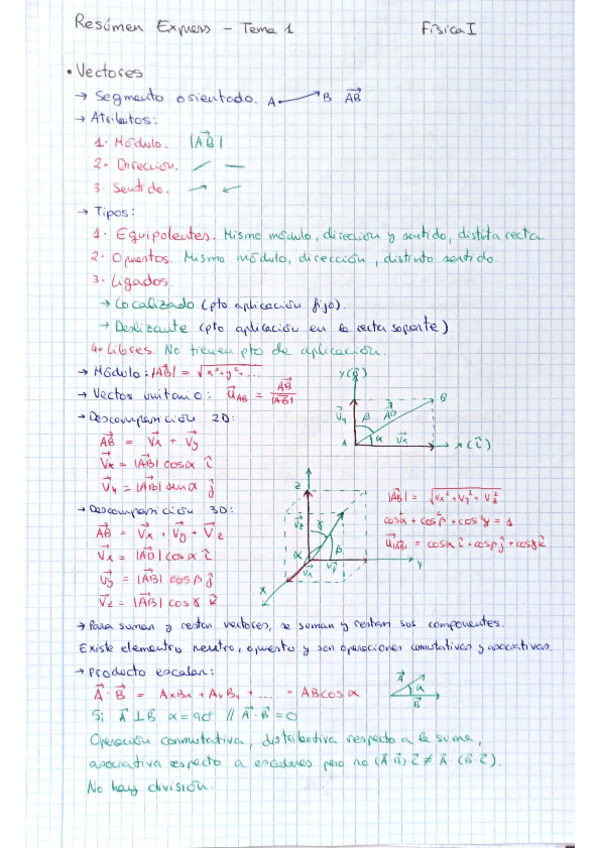 Resúmen Express - Tema 1 Física I
• Vectores
→ Segmento orientado. A B $\vec{AB}$
→ Atributos:
1. Módulo. |$\vec{AB}$|
2. Dirección.
3. Sentido.
→ Tipos:
1. Equipolentes. Mismo módulo, dirección y sentido, distita recta.
2. Opuestos. Mismo módulo, dirección, distinto sentido.
3. Ligados.
→ Localizado (pto aplicación fijo).
→ Deslizante (pto aplicación en la recta soporte)
4. Libres. No tienen pto de aplicación.
→ Módulo: |$\vec{AB}$| = √(x²+y²+...)
→ Vector unitario: $\vec{u}_{AB}$ = $\vec{AB}$ / |$\vec{AB}$|
→ Descomposición 2D:
$\vec{AB}$ = $\vec{Vx}$ + $\vec{Vy}$
$\vec{Vx}$ = |$\vec{AB}$| cosα î
$\vec{Vy}$ = |$\vec{AB}$| senα ĵ
y(ĵ) B $\vec{Vy}$ β $\vec{AB}$ A α $\vec{Vx}$ x(î)
→ Descomposición 3D:
$\vec{AB}$ = $\vec{Vx}$ + $\vec{Vy}$ + $\vec{Vz}$
$\vec{Vx}$ = |$\vec{AB}$| cos α î
$\vec{Vy}$ = |$\vec{AB}$| cos β ĵ
$\vec{Vz}$ = |$\vec{AB}$| cos γ k̂
z $\vec{Vz}$ γ α β $\vec{Vx}$ $\vec{Vy}$ x y
|$\vec{AB}$| = √(Vx²+Vy²+Vz²)
cos²α + cos²β + cos²γ = 1
$\vec{u}_{|AB|}$ = cosα î + cosβ ĵ + cosγ k̂
→ Para suman y restan vectores, se suman y restan sus componentes.
Existe elemento neutro, opuesto y son operaciones conmutativas y asociativas.
→ Producto escalar:
$\vec{A}$ · $\vec{B}$ = AxBx + AyBy + ... = ABcosα
$\vec{A}$ α $\vec{B}$
Si $\vec{A}$ ⊥ $\vec{B}$ α = 90° // $\vec{A}$ · $\vec{B}$ = 0
Operación conmutativa, distributiva respecto a la suma,
asociativa respecto a escalares pero no ($\vec{A}$·$\vec{B}$)·$\vec{C}$ ≠ $\vec{A}$·($\vec{B}$·$\vec{C}$).
No hay división.